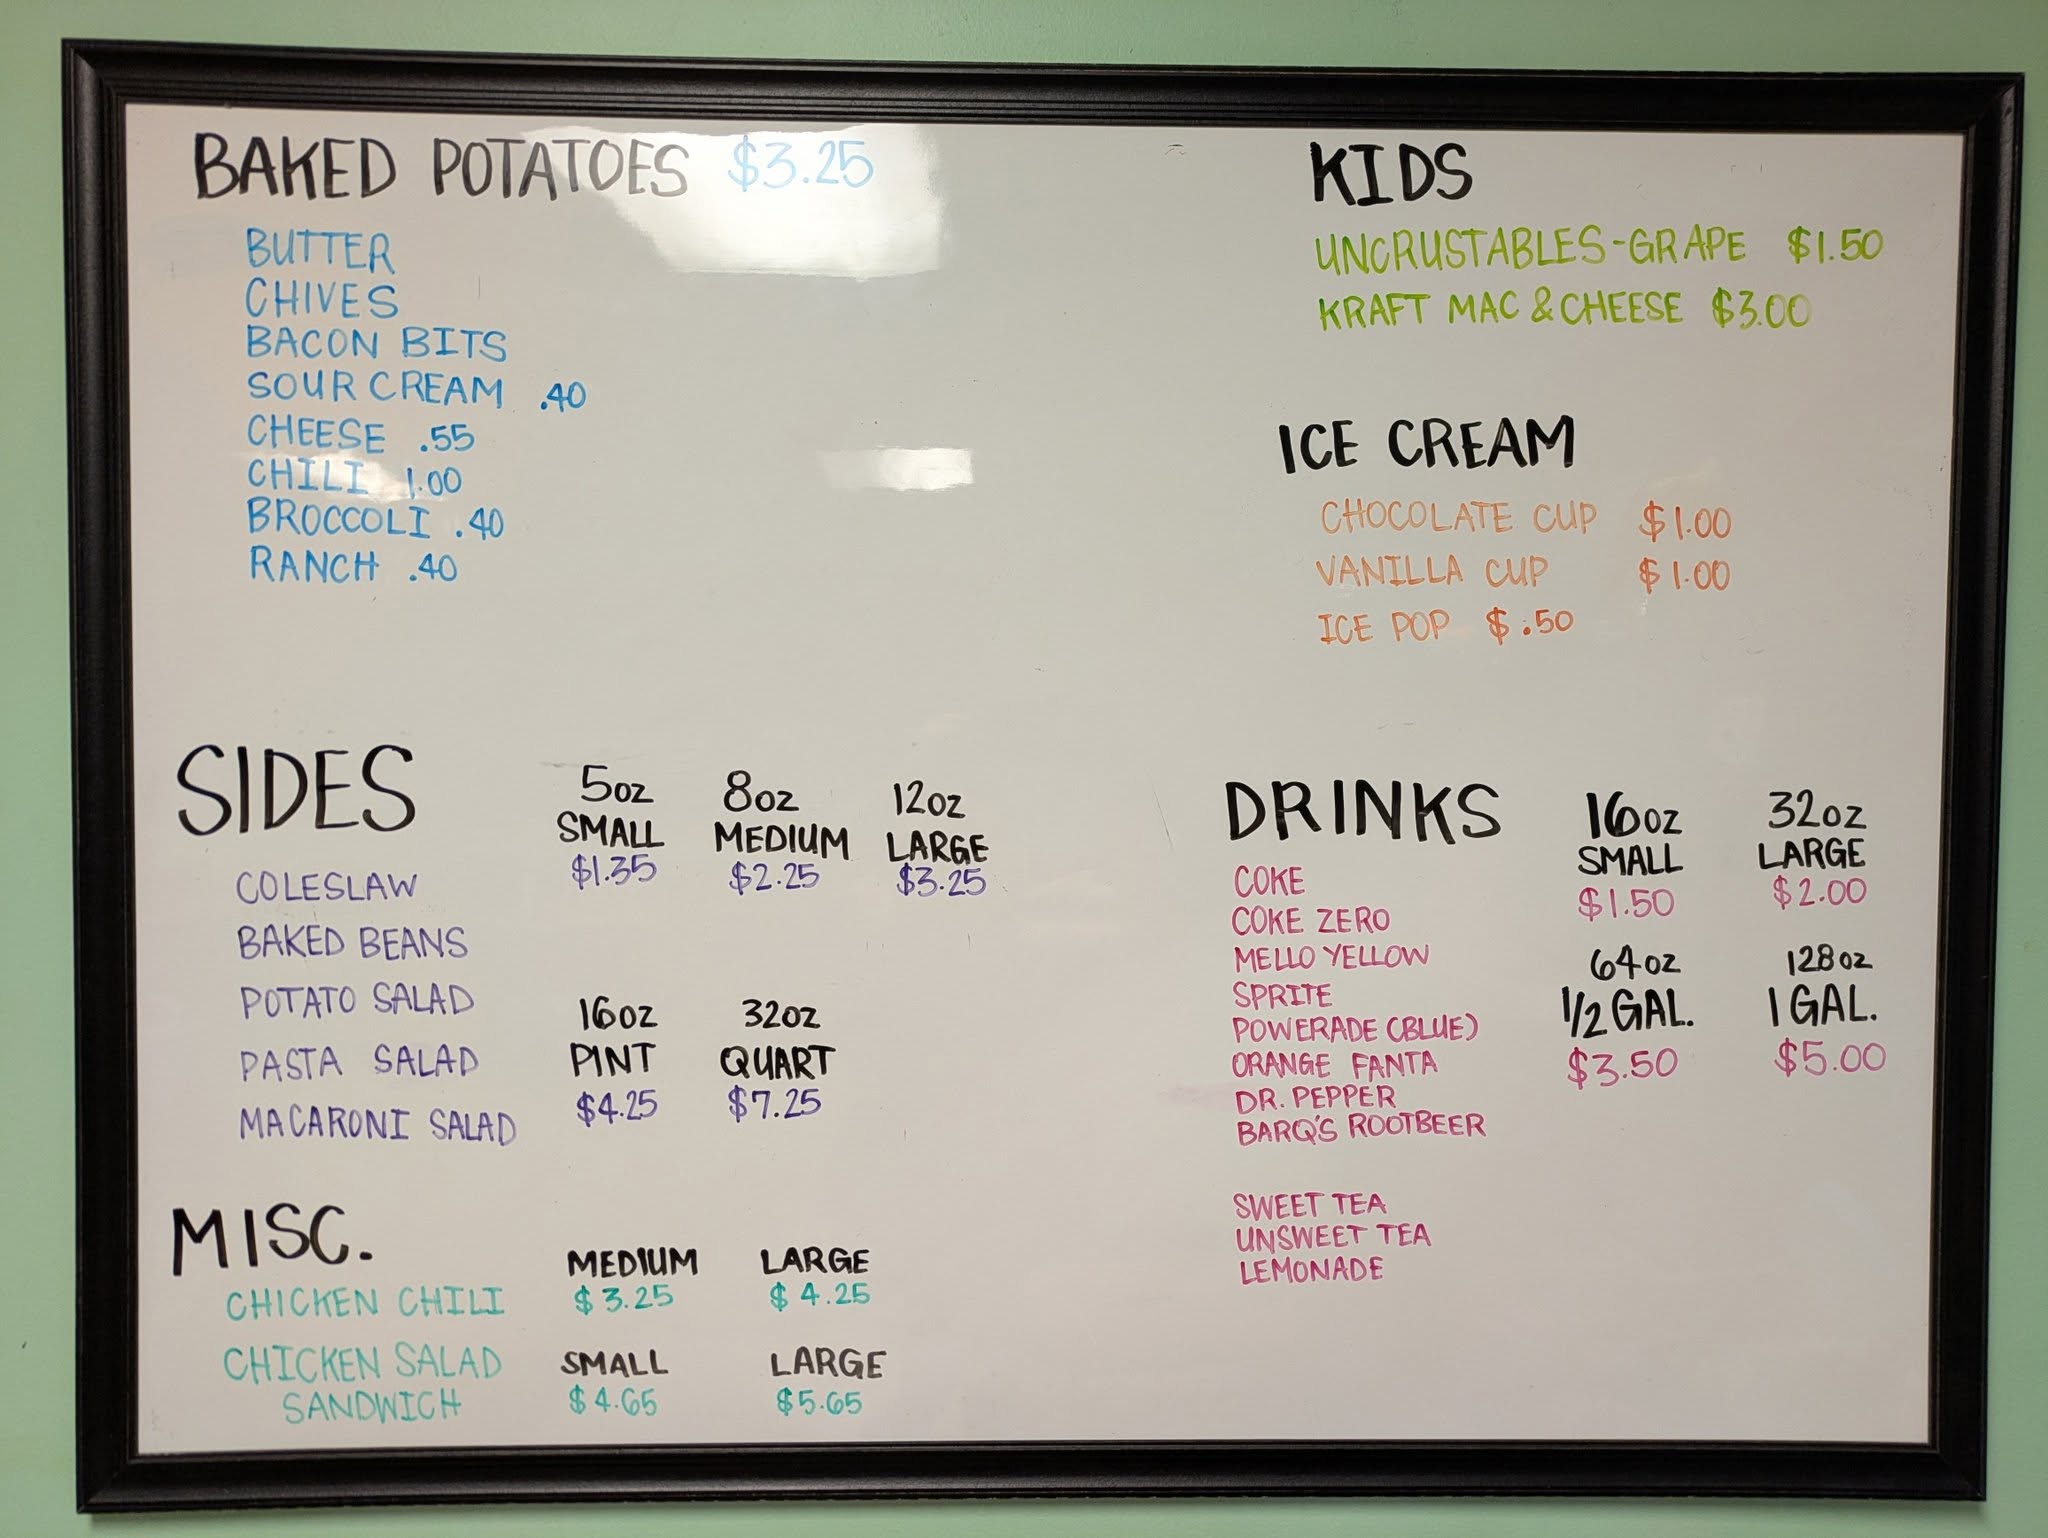 BAKED POTATOES $3.25
BUTTER
CHIVES
BACON BITS
SOUR CREAM .40
CHEESE .55
CHILI 1.00
BROCCOLI .40
RANCH .40
KIDS
UNCRUSTABLES-GRAPE $1.50
KRAFT MAC & CHEESE $3.00
ICE CREAM
CHOCOLATE CUP $1.00
VANILLA CUP $1.00
ICE POP $.50
SIDES
5oz 8oz 12oz
SMALL MEDIUM LARGE
$1.35 $2.25 $3.25
COLESLAW
BAKED BEANS
POTATO SALAD
PASTA SALAD
MACARONI SALAD
16oz 32oz
PINT QUART
$4.25 $7.25
MISC.
MEDIUM LARGE
CHICKEN CHILI $3.25 $4.25
SMALL LARGE
CHICKEN SALAD
SANDWICH $4.65 $5.65
DRINKS
16oz 32oz
SMALL LARGE
$1.50 $2.00
64oz 128oz
1/2 GAL. 1 GAL.
$3.50 $5.00
COKE
COKE ZERO
MELLO YELLOW
SPRITE
POWERADE (BLUE)
ORANGE FANTA
DR. PEPPER
BARQ'S ROOTBEER
SWEET TEA
UNSWEET TEA
LEMONADE